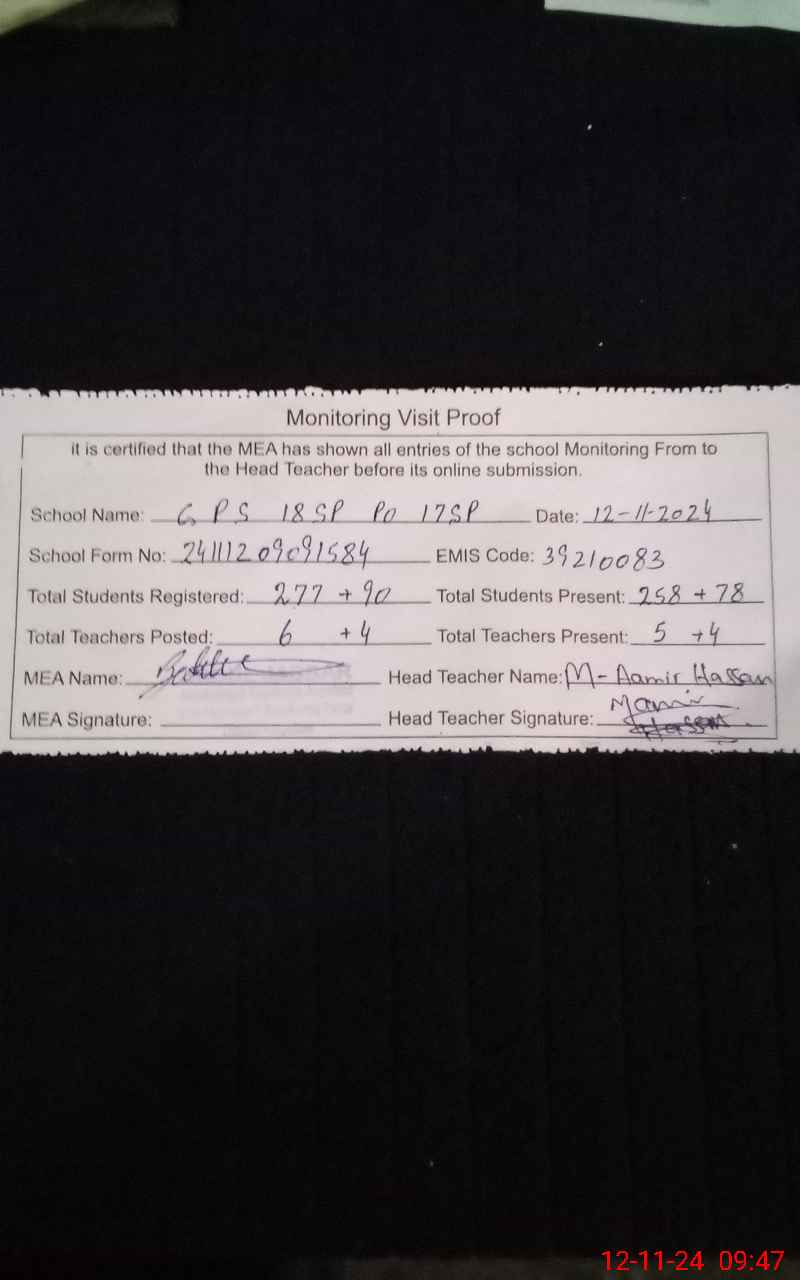 Monitoring Visit Proof
it is certified that the MEA has shown all entries of the school Monitoring From to
the Head Teacher before its online submission.
School Name: G PS 18 SP PO 17SP Date: 12-11-2024
School Form No: 24111209091584 EMIS Code: 39210083
Total Students Registered: 277 + 90 Total Students Present: 258 + 78
Total Teachers Posted: 6 +4 Total Teachers Present: 5 +4
MEA Name: Head Teacher Name: M- Aamir Hassan
MEA Signature: Head Teacher Signature: Maamir Hassan
12-11-24 09:47